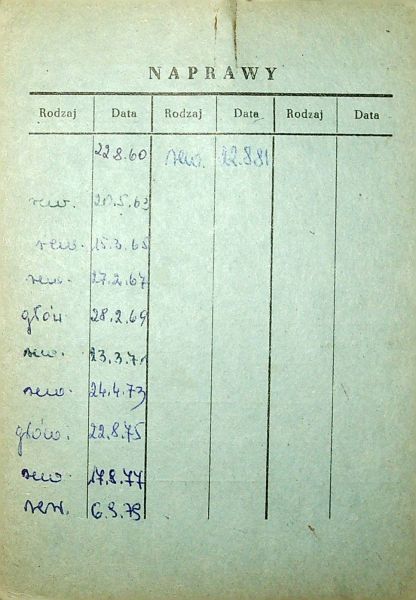 NAPRAWY
Rodzaj Data Rodzaj Data Rodzaj Data
22.8.60 rew. 22.8.81
rew. 21.5.63
rew. 15.3.65
rew. 27.2.67
głów 28.2.69
rew. 23.3.71
rew. 24.4.73
głów. 22.8.75
rew 17.8.77
rew. 6.9.79